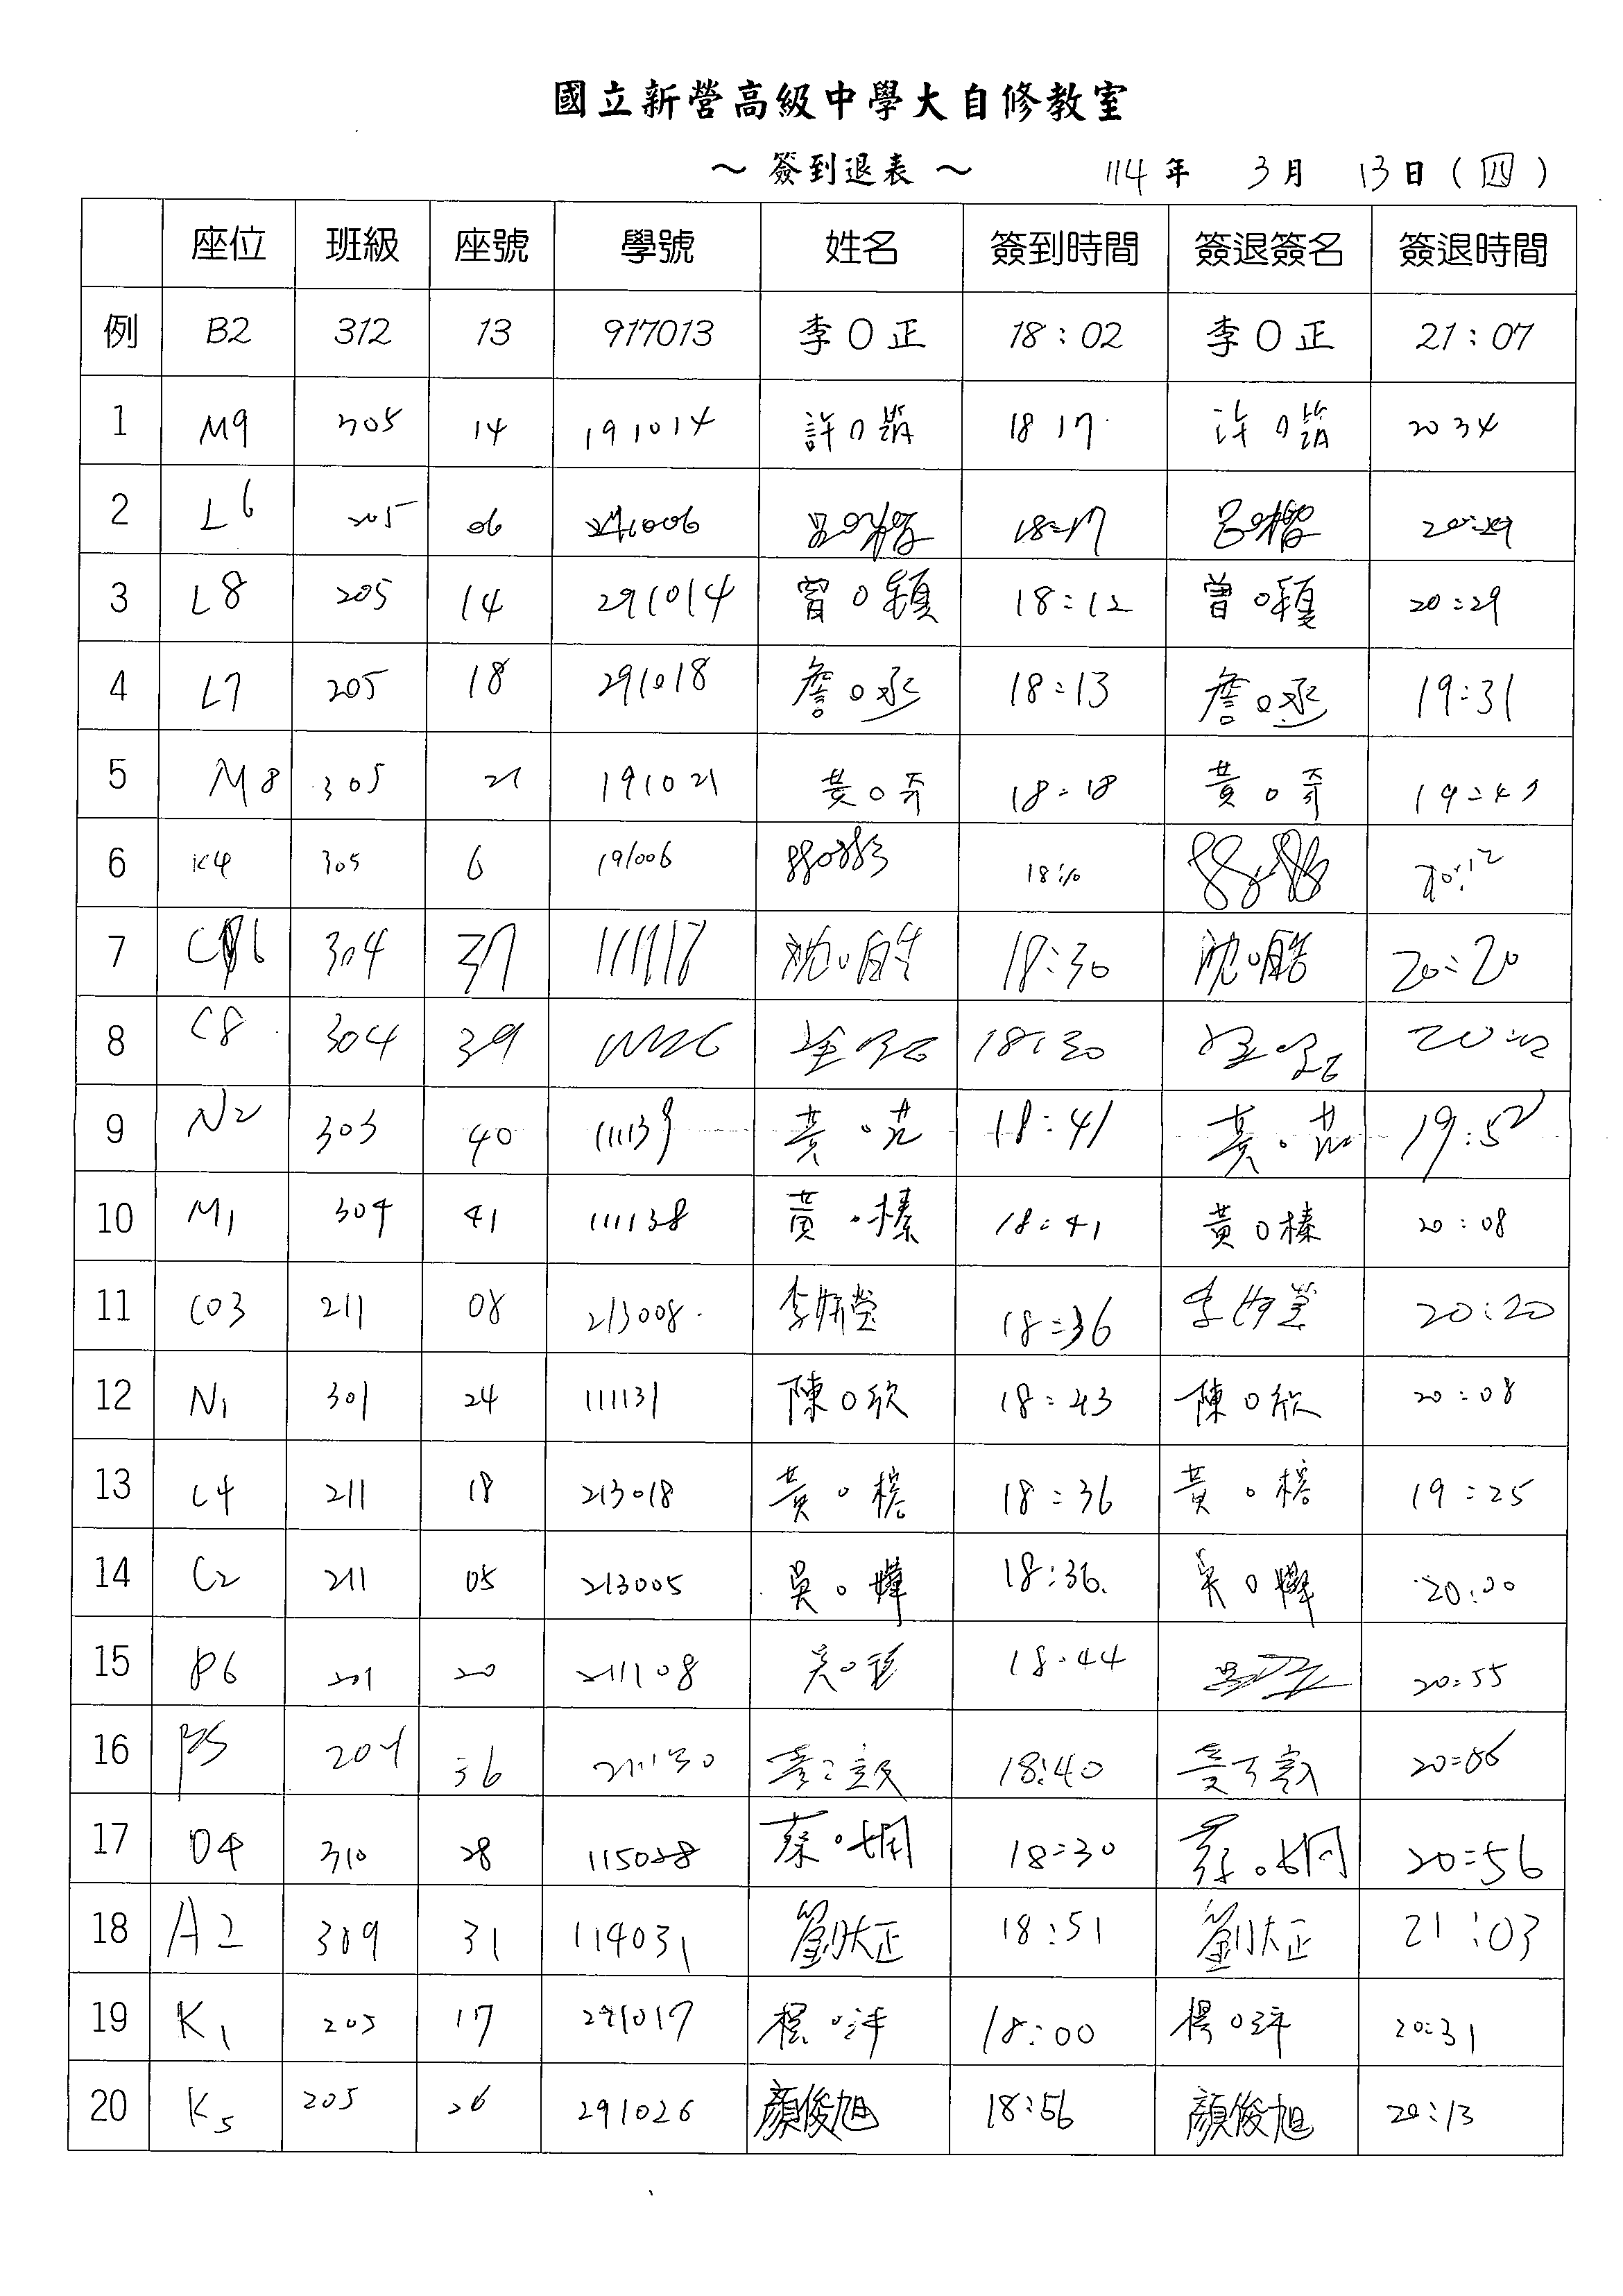 國立新營高級中學大自修教室
～ 簽到退表 ～ 114 年 3 月 13 日 ( 四 )
座位 班級 座號 學號 姓名 簽到時間 簽退簽名 簽退時間
例 B2 312 13 917013 李O正 18:02 李O正 21:07
1 M9 305 14 191014 許O 18 17 許O 20 34
2 L6 205 06 呂O 18:17 呂O
3 L8 205 14 291014 曾O穎 18:12 曾O穎 20:29
4 L7 205 18 291018 詹O丞 18:13 詹O丞 19:31
5 M8 305 21 191021 黃O奇 18:18 黃O奇
6 K4 305 6 191006 18:10 20:12
7 304 37 沈O皓 18:30 沈O皓 20:20
8 C8 304 39 18:30
9 N2 303 40 11139 黃O 18:41 黃O 19:52
10 M1 304 41 111138 黃O榛 18:41 黃O榛 20:08
11 C03 211 08 213008 李妍瑩 18:36 李妍瑩 20:20
12 N1 301 24 111131 陳O欣 18:43 陳O欣 20:08
13 L4 211 18 213018 黃O榕 18:36 黃O榕 19:25
14 C2 211 05 213005 吳O 18:36 吳O 20:20
15 P6 201 20 211108 吳O 18:44 20:55
16 P5 204 36 211130 18:40 20:06
17 D4 310 28 115028 蔡O炯 18:30 蔡O炯 20:56
18 A2 309 31 114031 劉大正 18:51 劉大正 21:03
19 K1 205 17 291017 楊O 18:00 楊O 20:31
20 K5 205 26 291026 顏俊旭 18:56 顏俊旭 20:13